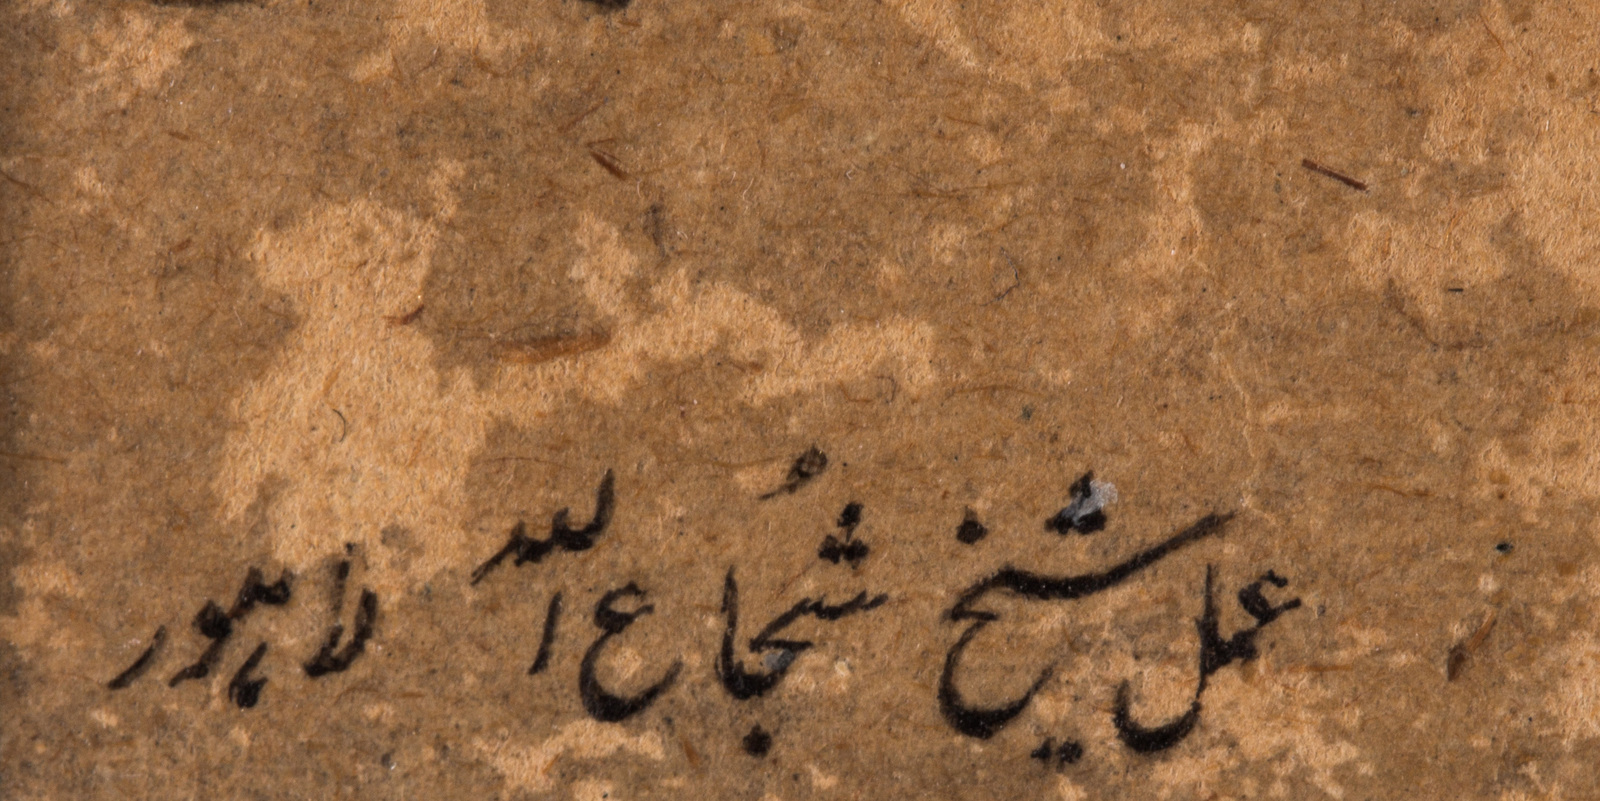 عمل شیخ شُجاع الله لاہور